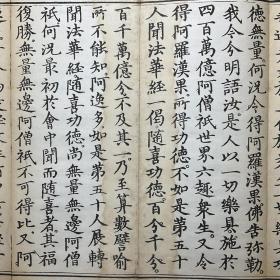 德無量何況令得阿羅漢果佛告彌勒
我今分明語汝是人以一切樂具施於
四百萬億阿僧祇世界六趣衆生又令
得阿羅漢果所得功德不如是第五十
人聞法華經一偈隨喜功德百分千分
百千萬億分不及其一乃至算數譬喻
所不能知阿逸多如是第五十人展轉
聞法華經隨喜功德尚無量無邊阿僧
祇何況最初於會中聞而隨喜者其福
復勝無量無邊阿僧祇不可得比又阿